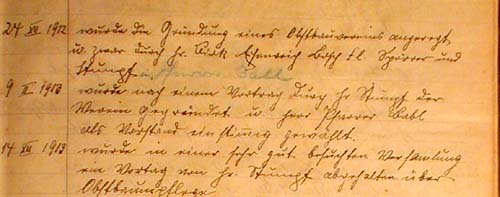 24 XII 1912 wurde die Gründung eines Obstbauvereins angeregt,
u. zwar durch Hr. Eisenreich Bösch fl. Spörer und
Stumpf u. Pfarrer Babl
9 II 1913 wurde nach einem Vortrag durch Hr Stumpf der
Verein gegründet u. Herr Pfarrer Babl
als Vorstand einstimmig gewählt.
14 XII 1913 wurde in einer sehr gut besuchten Versamlung
ein Vortag von Hr. Stumpf abgehalten über
Obstbaumpflege